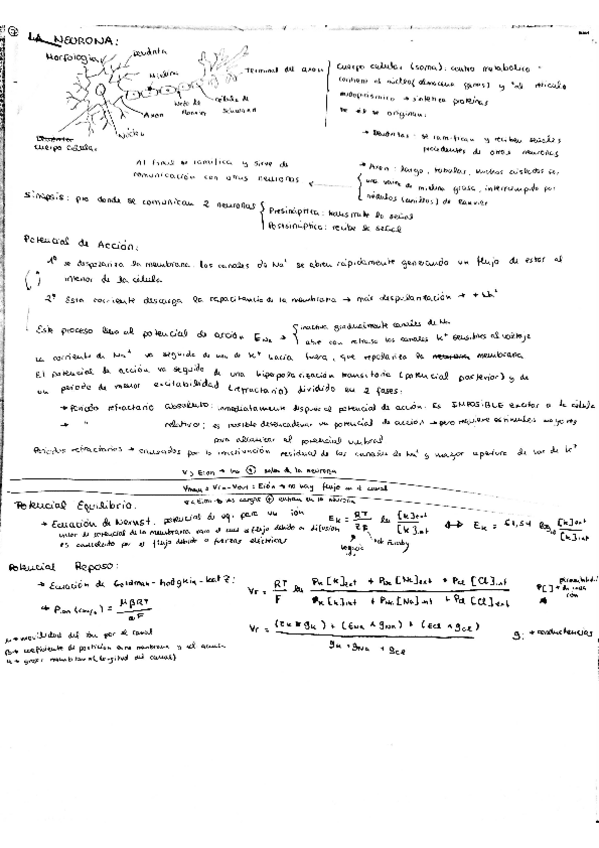 LA NEURONA:
Morfología
Dendrita
Mielina
Terminal del axon
Nodo de Ranvier
células de Schwann
Axon
Núcleo
cuerpo celular
cuerpo celular (soma): centro metabólico
contiene el núcleo (almacena genes) y el retículo
endoplasmático → sintetiza proteínas
De él se originan:
→ Dendritas: se ramifican y reciben señales
procedentes de otras neuronas
→ Axon: largo, tubular, muchos
una vaina de mielina grasa, interrumpida por
nódulos de Ranvier
Al final se ramifica y sirve de
comunicación con otras neuronas
Sinapsis: por donde se comunican 2 neuronas
Presináptica: transmite la señal
Postsináptica: recibe la señal
Potencial de Acción:
1º se despolariza la membrana. los canales de Na+ se abren rápidamente generando un flujo de estos al
interior de la célula.
2º Esta corriente descarga la capacitancia de la membrana → más despolarización → + Na+
Este proceso lleva al potencial de acción E_Na →
inactiva gradualmente canales de Na
abre con retraso los canales K+ sensibles al voltaje
La corriente de Na+ va seguida de una de K+ hacia fuera, que repolariza la membrana
El potencial de acción va seguido de una hiperpolarización transitoria (potencial posterior) y de
un periodo de menor excitabilidad (refractario) dividido en 2 fases:
→ Periodo refractario absoluto: inmediatamente después del potencial de acción. Es IMPOSIBLE excitar a la célula
→ " relativo: es posible desencadenar un potencial de acción → pero requiere estímulos mayores
para alcanzar el potencial umbral
Periodos refractarios → causados por la inactivación residual de los canales de Na+ y mayor apertura de los de K+
V > Eion → los ⊕ salen de la neurona
= Vin - Vout = Eion → no hay flujo en el canal
V < Eion → las cargas ⊕ entran en la neurona
Potencial Equilibrio.
→ Ecuación de Nernst. potencial de eq. para un ión
valor de potencial de la membrana para el cual el flujo debido a difusión
es cancelado por el flujo debido a fuerzas eléctricas
E_K = RT/ZF ln [K]ext/[K]int ⟺ E_K = 61,54 log10 [K]ext/[K]int
Potencial Reposo:
→ Ecuación de Goldman-hodgkin-katz:
Vr = RT/F ln (P_K [K]ext + P_Na [Na]ext + P_Cl [Cl]int) / (P_K [K]int + P_Na [Na]int + P_Cl [Cl]ext)
P ion (cm/s) = μβRT/aF
μ → movilidad del ion por el canal
β → coeficiente de partición entre membrana y el acuoso
a → grosor membrana (longitud del canal)
Vr = ((E_K × g_K) + (E_Na × g_Na) + (E_Cl × g_Cl)) / (g_K + g_Na + g_Cl)
g: → conductancias